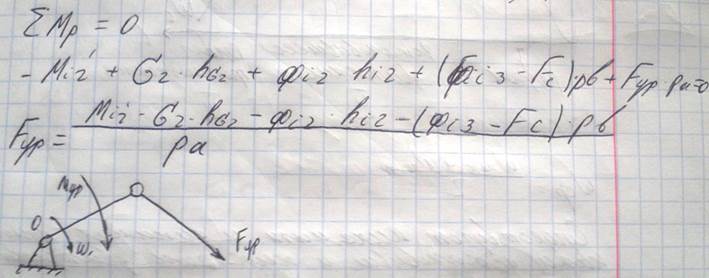 ΣMp = 0
- Mi2' + G2·hG2 + Φi2·hi2 + (Φi3 - Fc)·pb + Fyp·pa=0
Fyp = (Mi2' - G2·hG2 - Φi2·hi2 - (Φi3 - Fc)·pb) / pa
Myp
O
ω1
Fyp